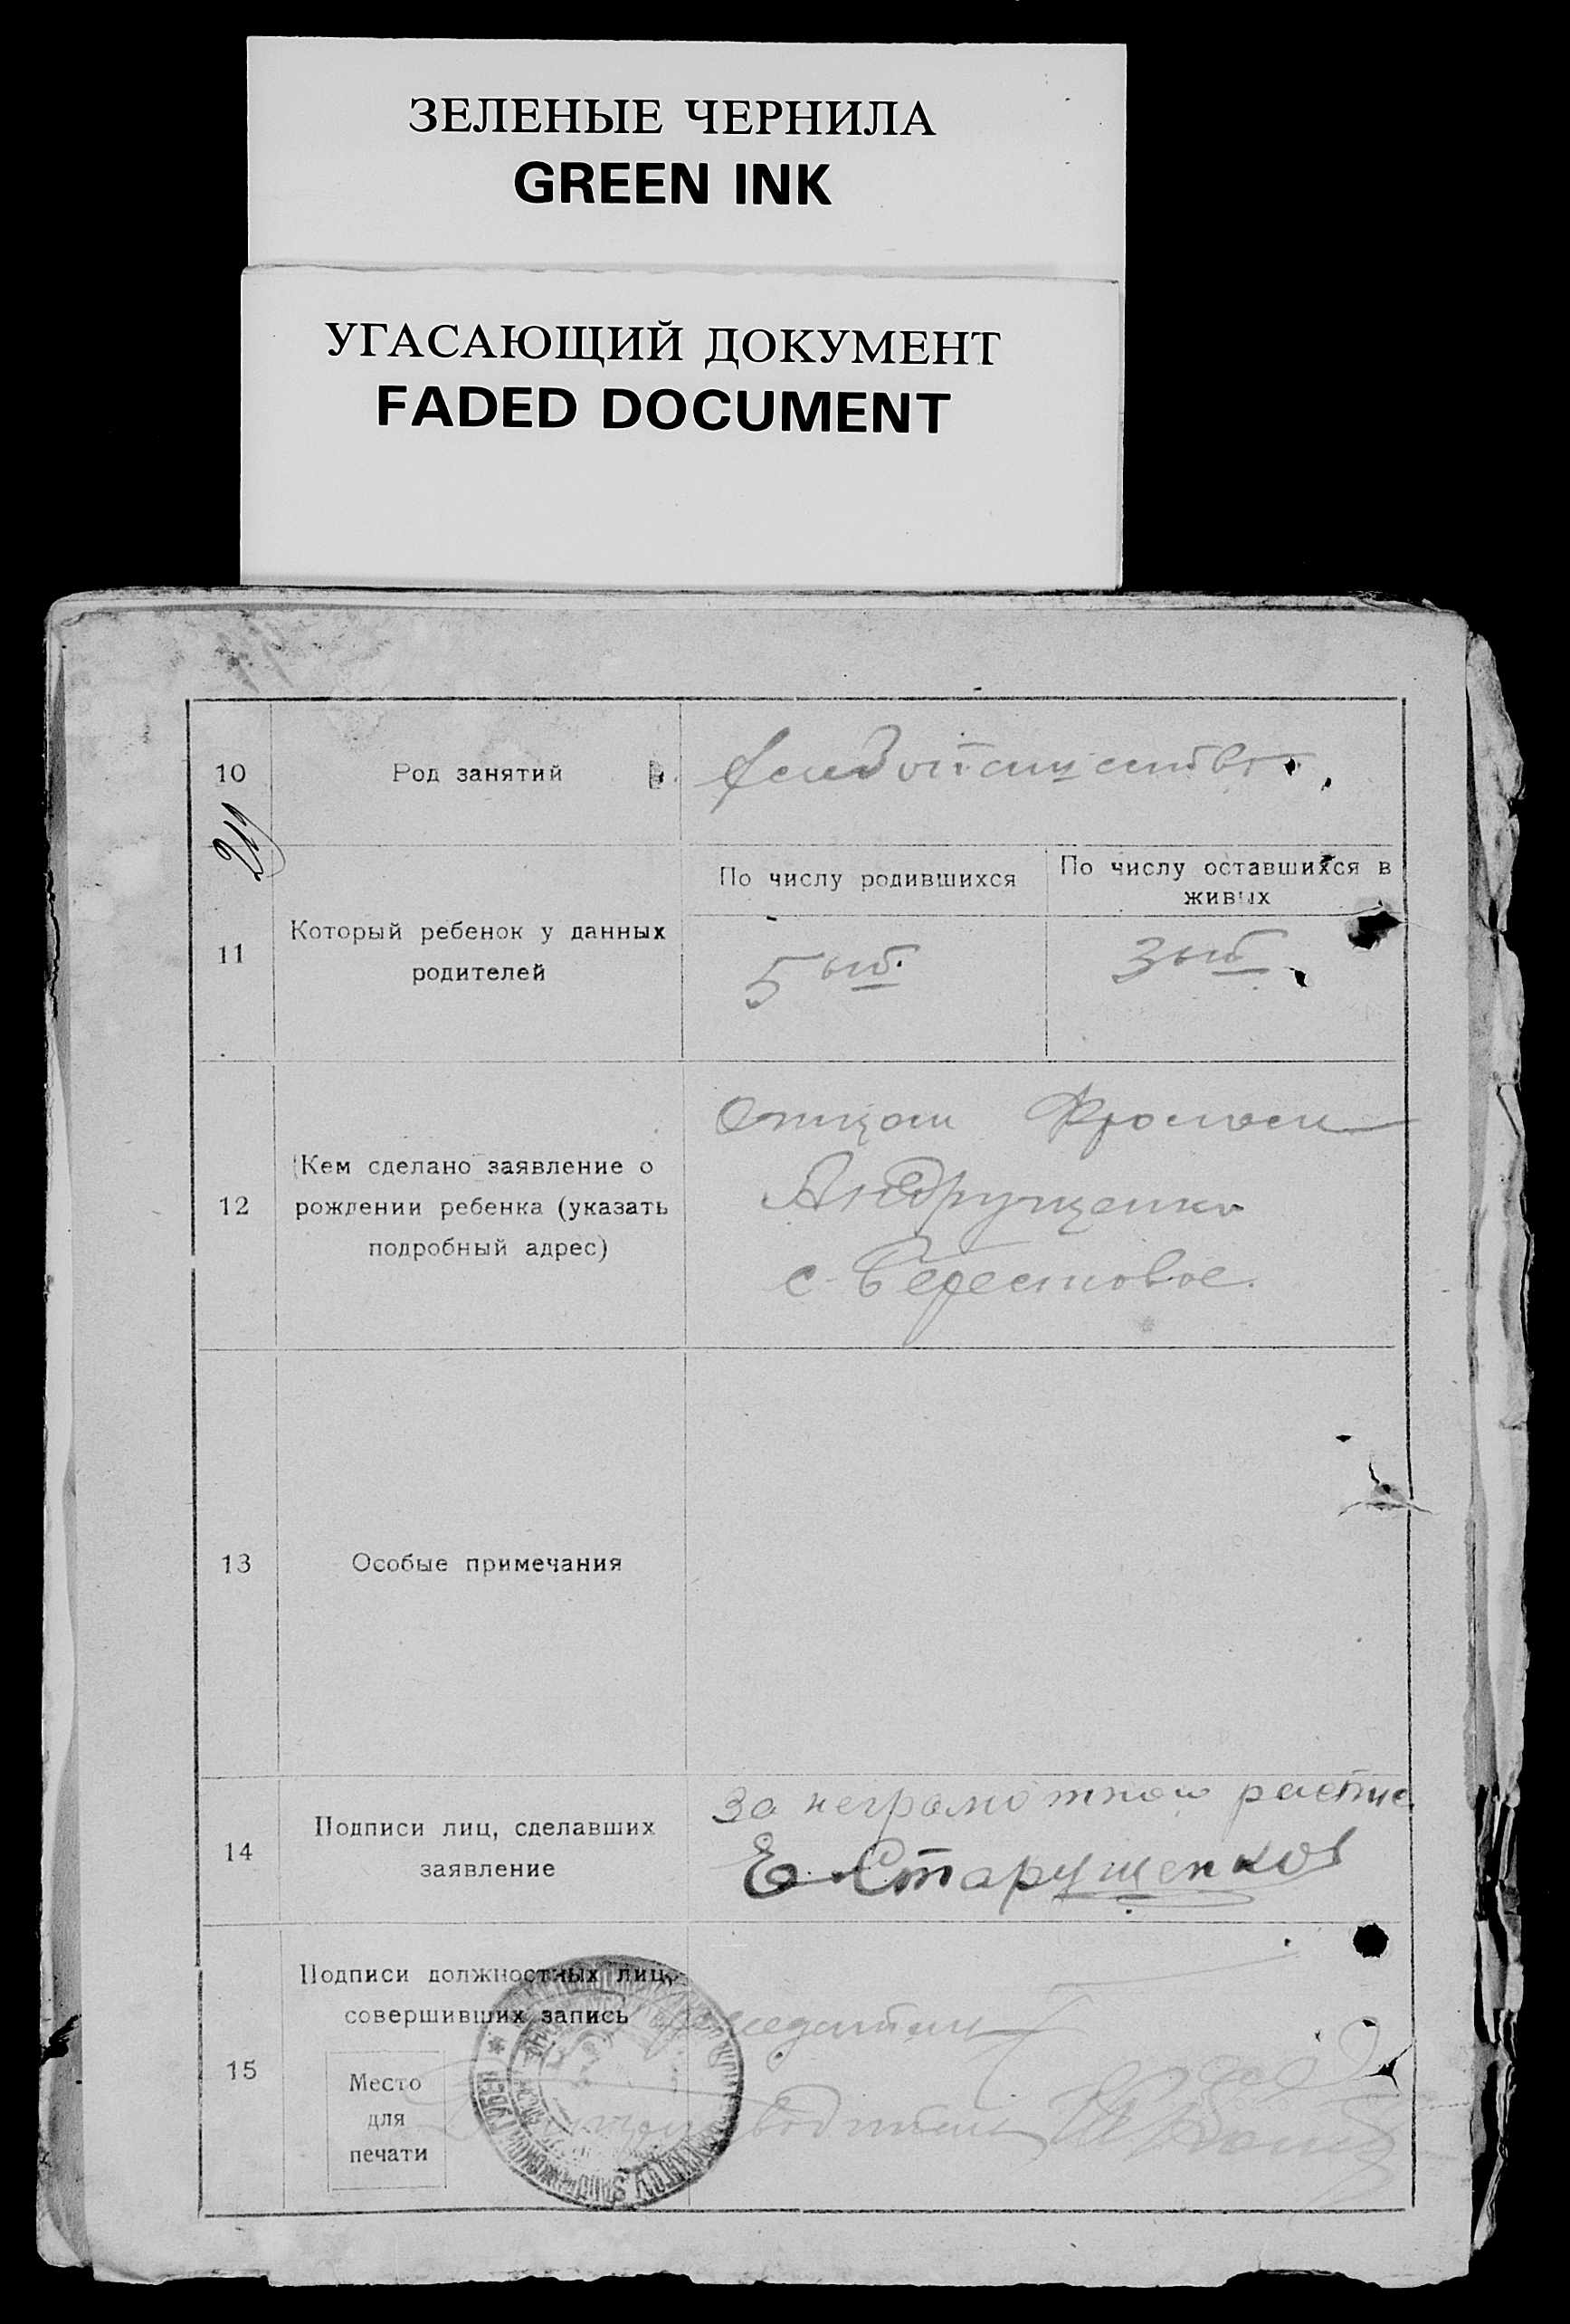 ЗЕЛЕНЫЕ ЧЕРНИЛА
GREEN INK
УГАСАЮЩИЙ ДОКУМЕНТ
FADED DOCUMENT
10 Род занятий
11 Который ребенок у данных
родителей
По числу родившихся
5 ый
По числу оставшихся в
живых
3 ый
12 Кем сделано заявление о
рождении ребенка (указать
подробный адрес)
Отцом
Андрущенко
с. Берестовое.
13 Особые примечания
14 Подписи лиц, сделавших
заявление
за неграмотного
Е Старущенков
15 Подписи должностных лиц,
совершивших запись
Место
для
печати